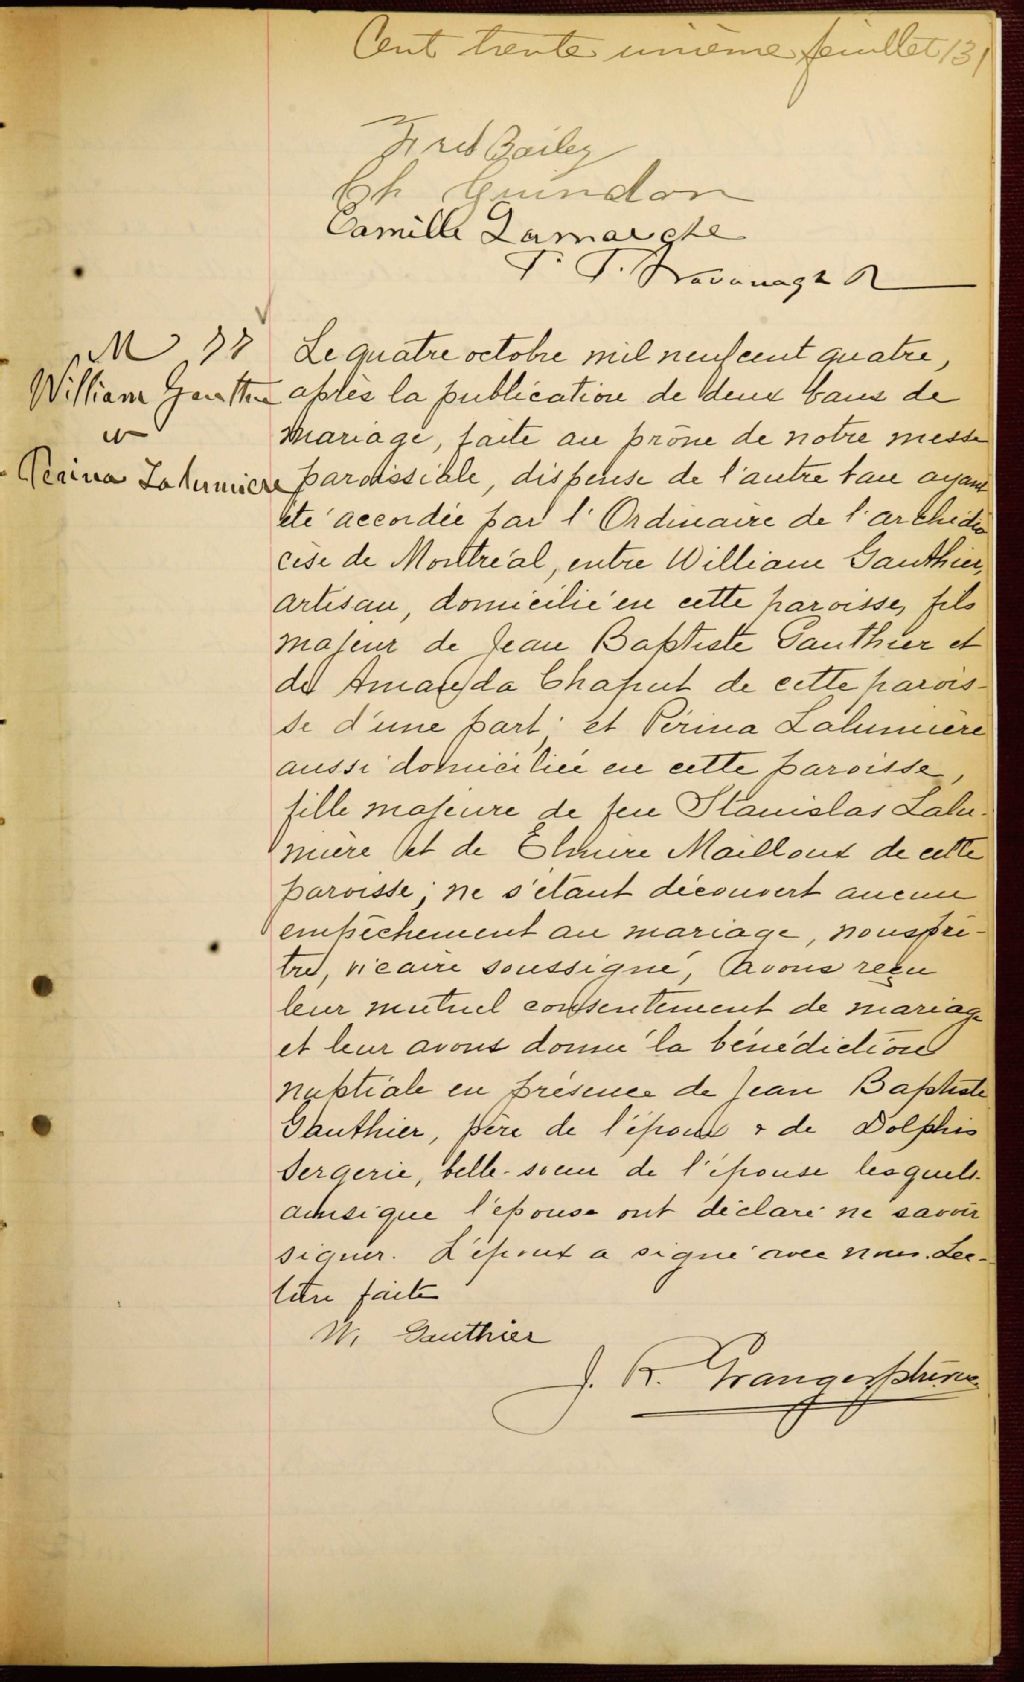 Cent trente unième feuillet 131
Fred Bailey
Ch Guindon
Camille Lamarche
T. T. Kavanagh
M 77
William Gauthier
et
Perina Lalumière
Le quatre octobre mil neuf cent quatre,
après la publication de deux bans de
mariage, faite au prône de notre messe
paroissiale, dispense de l'autre ban ayant
été accordée par l'Ordinaire de l'archidio
cèse de Montréal, entre William Gauthier,
artisan, domicilié en cette paroisse, fils
majeur de Jean Baptiste Gauthier et
de Amanda Chaput de cette parois-
se d'une part; et Périna Lalumière
aussi domiciliée en cette paroisse,
fille majeure de feu Stanislas Lalu-
mière et de Elmire Mailloux de cette
paroisse; ne s'étant découvert aucun
empêchement au mariage, nous prê-
tre, vicaire soussigné, avons reçu
leur mutuel consentement de mariage
et leur avons donné la bénédiction
nuptiale en présence de Jean Baptiste
Gauthier, père de l'époux & de Dolphis
Sergerie, belle-soeur de l'épouse lesquels
ainsi que l'épouse ont déclaré ne savoir
signer. L'époux a signé avec nous. Lec-
ture faite
W. Gauthier
J. R. Granger ptre vic.